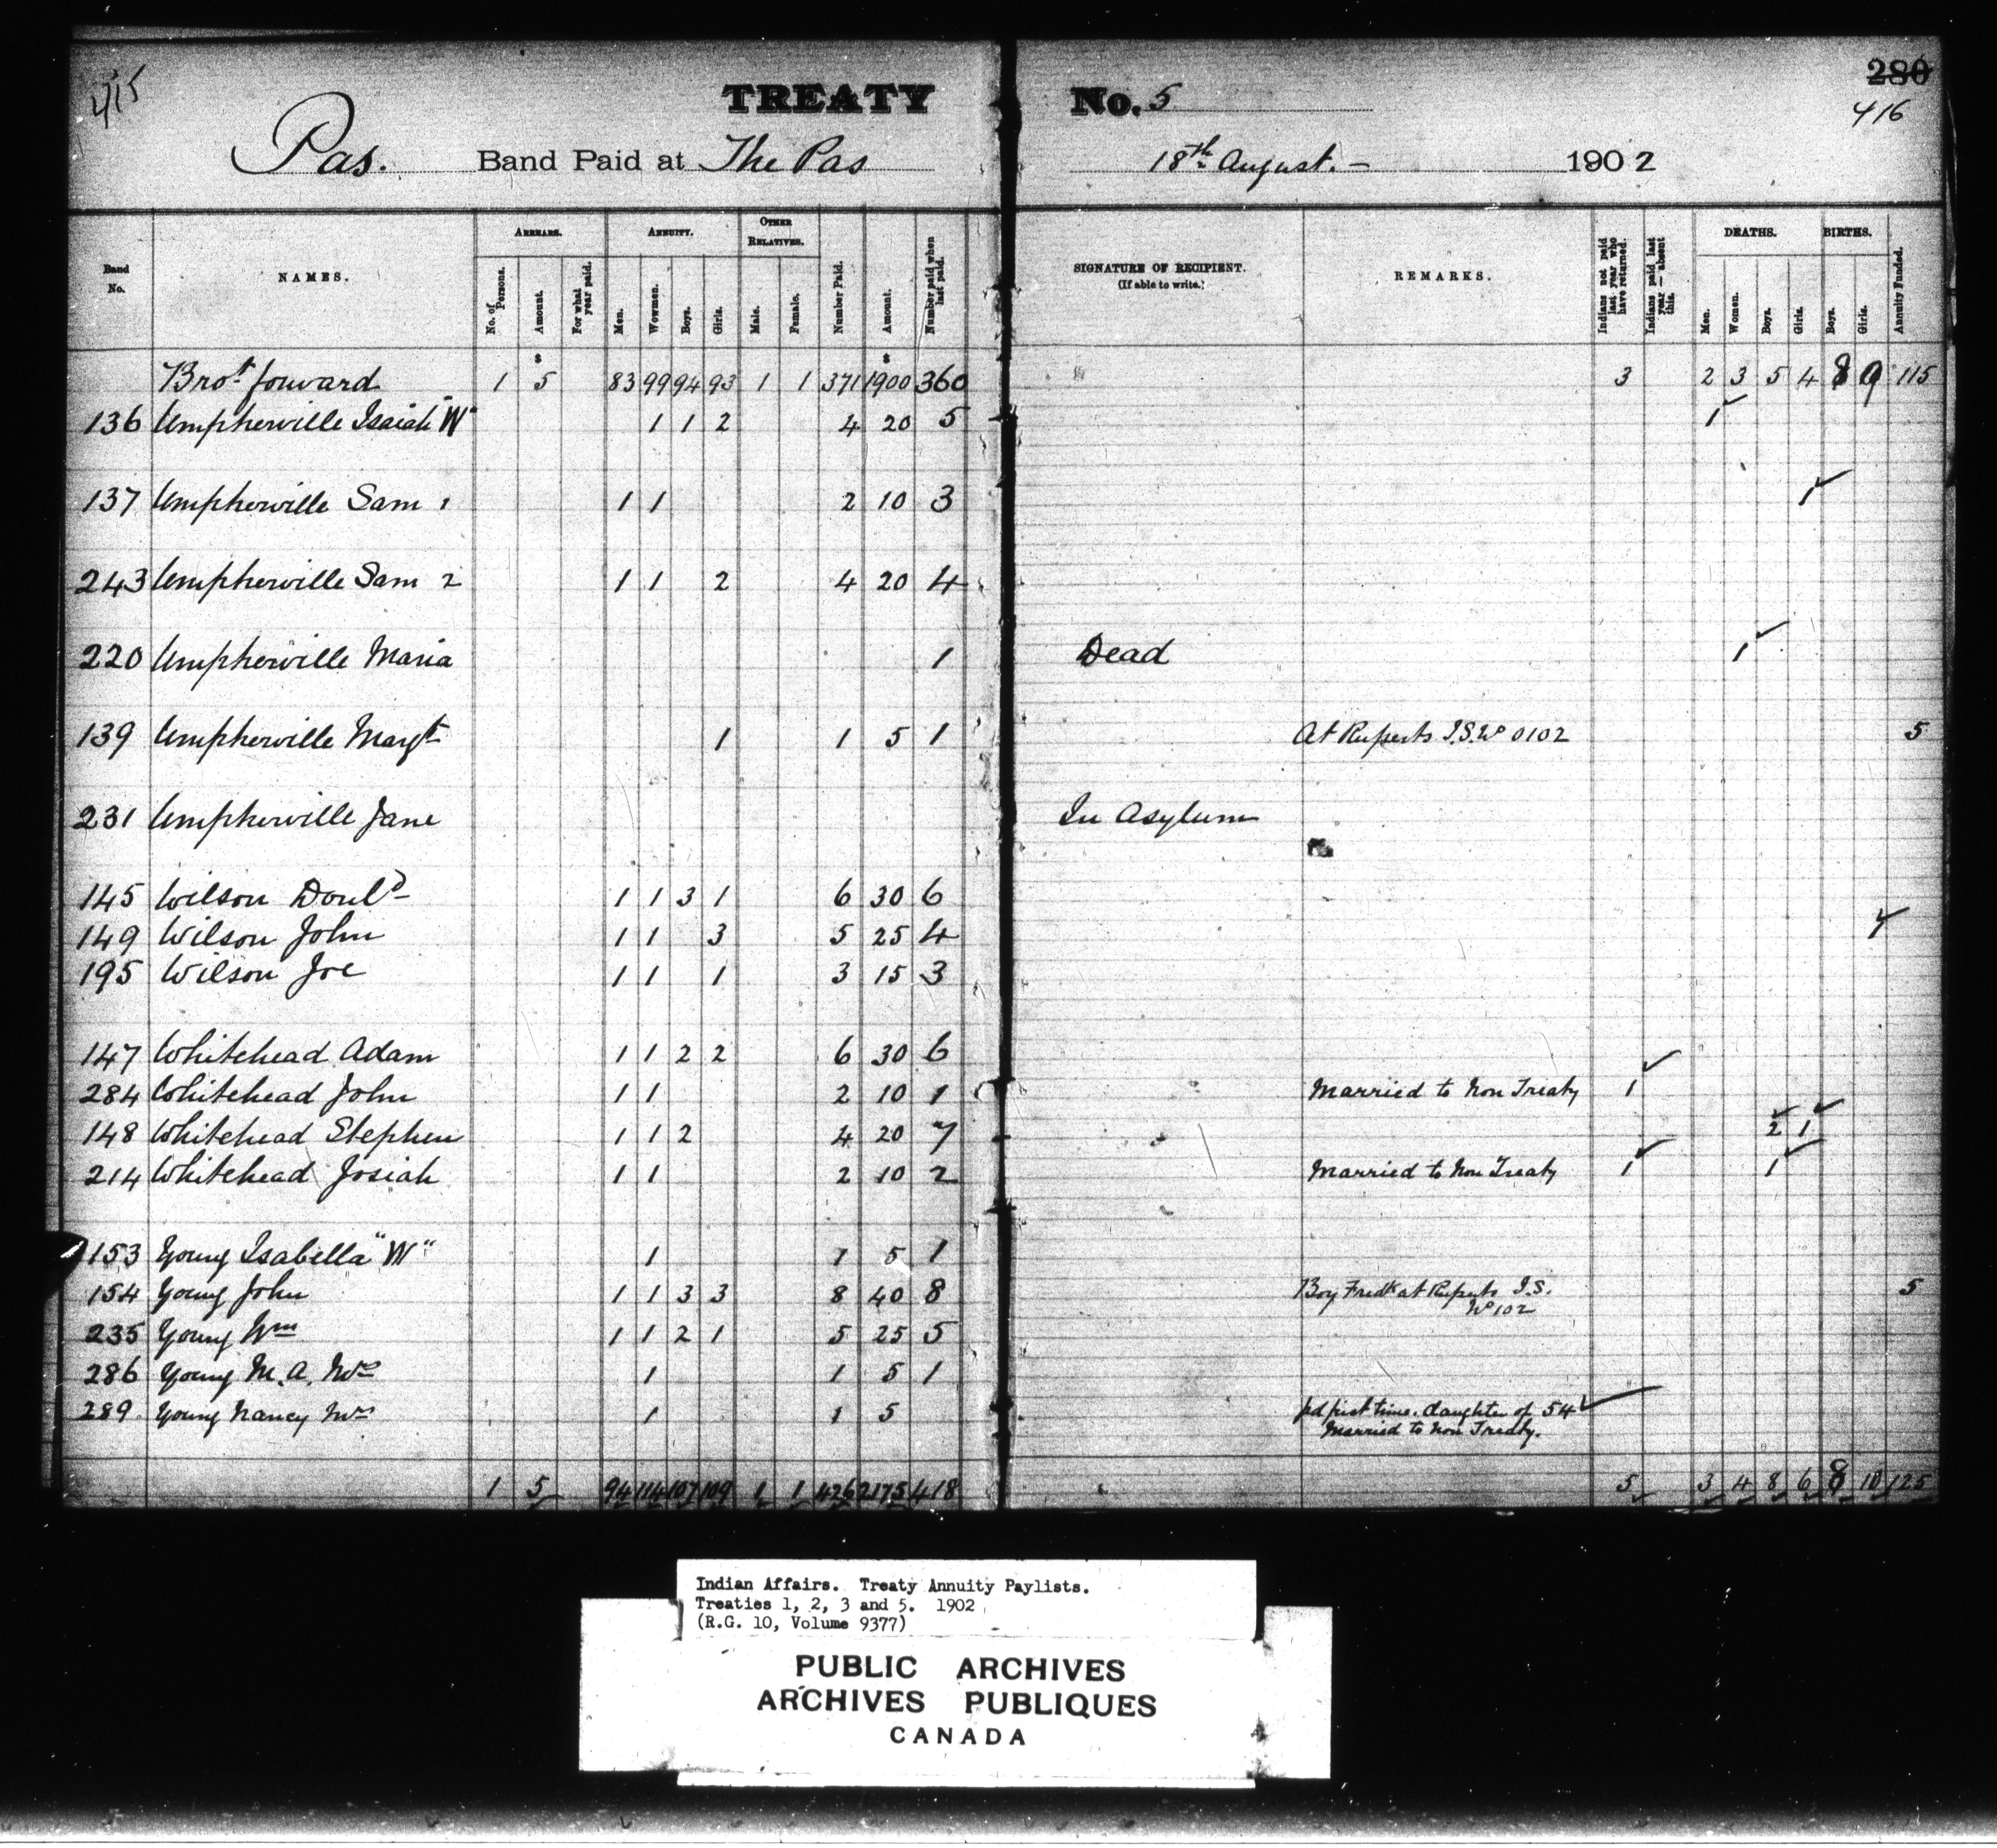 415
TREATY No. 5
280
416
Pas. Band Paid at The Pas 18th August. - 1902
Band No.
NAMES.
ARREARS.
No. of Persons.
Amount.
For what year paid.
ANNUITY.
Men.
Wowmen.
Boys.
Girls.
OTHER RELATIVES.
Male.
Female.
Number Paid.
Amount.
Number paid when last paid.
SIGNATURE OF RECIPIENT.
(If able to write.)
REMARKS.
Indians not paid last year who have returned.
Indians paid last year — absent this.
DEATHS.
Men.
Women.
Boys.
Girls.
BIRTHS.
Boys.
Girls.
Annuity Funded.
$ $
Brot forward 1 5 83 99 94 93 1 1 371 1900 360 3 2 3 5 4 8 9 115
136 Umpherville Isaiah "W" 1 1 2 4 20 5 1
137 Umpherville Sam 1 1 1 2 10 3 1
243 Umpherville Sam 2 1 1 2 4 20 4
220 Umpherville Maria 1 Dead 1
139 Umpherville Margt 1 1 5 1 At Ruperts I.S. No 0102 5
231 Umpherville Jane In Asylum
145 Wilson Donld 1 1 3 1 6 30 6
149 Wilson John 1 1 3 5 25 4 1
195 Wilson Joe 1 1 1 3 15 3
147 Whitehead Adam 1 1 2 2 6 30 6
284 Whitehead John 1 1 2 10 1 Married to Non Treaty 1
148 Whitehead Stephen 1 1 2 4 20 7 2 1
214 Whitehead Josiah 1 1 2 10 2 Married to Non Treaty 1 1
153 Young Isabella "W" 1 1 5 1
154 Young John 1 1 3 3 8 40 8 Boy Fredk at Ruperts I.S. 5
No 102
235 Young Wm 1 1 2 1 5 25 5
286 Young M. A. Mrs 1 1 5 1
289 Young Nancy Mrs 1 1 5 pd first time. daughter of 54
Married to Non Treaty.
1 5 94 114 107 109 1 1 426 2175 418 5 3 4 8 6 8 10 125
Indian Affairs. Treaty Annuity Paylists.
Treaties 1, 2, 3 and 5. 1902
(R.G. 10, Volume 9377)
PUBLIC ARCHIVES
ARCHIVES PUBLIQUES
CANADA